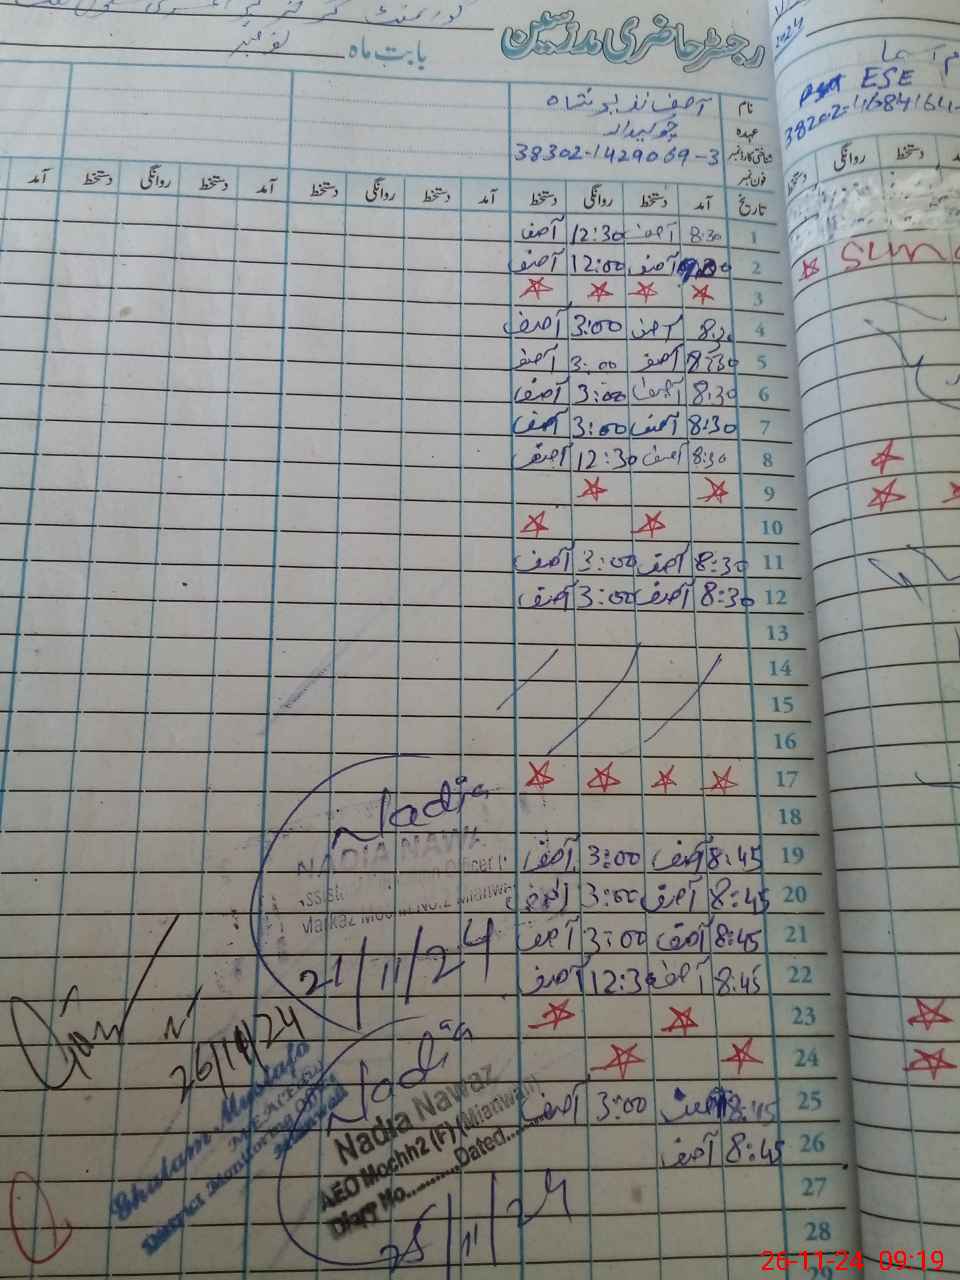 رجسٹر حاضری مدرسین
بابت ماہ نومبر
نام
عہدہ چوکیدار
شناختی کارڈ نمبر 38302-1429069-3
فون نمبر
تاریخ آمد دستخط روانگی دستخط آمد دستخط روانگی دستخط آمد دستخط روانگی دستخط آمد
1 8:30 آصف 12:30 آصف
2 آصف 12:00 آصف
3
4 8:30 آصف 3:00 آصف
5 8:30 آصف 3:00 آصف
6 8:30 آصف 3:00 آصف
7 8:30 آصف 3:00 آصف
8 8:30 آصف 12:30 آصف
9
10
11 8:30 آصف 3:00 آصف
12 8:30 آصف 3:00 آصف
13
14
15
16
17
18
19 8:45 آصف 3:00 آصف
20 8:45 آصف 3:00 آصف
21 8:45 آصف 3:00 آصف
22 8:45 آصف 12:30 آصف
23
24
25 8:45 آصف 3:00 آصف
26 8:45 آصف
27
28
29
Nadia
NADIA NAWA
Markaz Mochh No.2 Mianwa
21/11/24
26/11/24
Ghulam Mustafa
District Monitoring Officer
Mianwali
Nadia
Nadia Nawaz
AEO Mochh2 (F) (Mianwali)
Diary No...........Dated..........
25/11/24
2024
ESE
روانگی دستخط
Sun
26-11-24 09:19